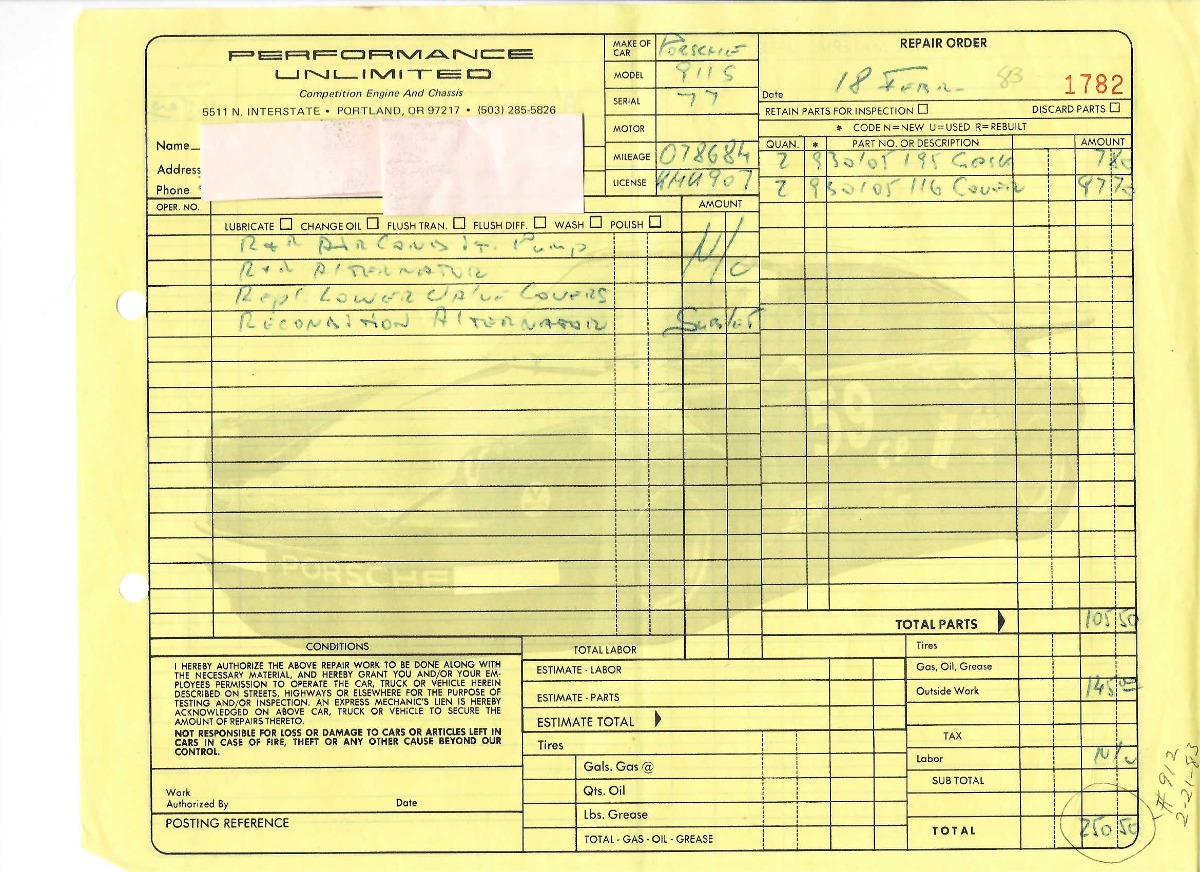 PERFORMANCE
UNLIMITED
Competition Engine And Chassis
5511 N. INTERSTATE • PORTLAND, OR 97217 • (503) 285-5826
Name
Address
Phone
MAKE OF CAR PORSCHE
MODEL 911S
SERIAL 77
MOTOR
MILEAGE 078684
LICENSE
REPAIR ORDER
Date 18 FEBR 83 1782
RETAIN PARTS FOR INSPECTION DISCARD PARTS
* CODE N=NEW U=USED R=REBUILT
QUAN. * PART NO. OR DESCRIPTION AMOUNT
2 930105195 GASK 7 80
2 930105116 COVER 97 70
OPER. NO. AMOUNT
LUBRICATE CHANGE OIL FLUSH TRAN. FLUSH DIFF. WASH POLISH
R+R AIR Pump N/C
R+R ALTERNATOR
Repl. LOWER VALVE COVERS
RECONDITION ALTERNATOR SUBLET
59
PORSCHE
TOTAL PARTS 105 50
CONDITIONS
I HEREBY AUTHORIZE THE ABOVE REPAIR WORK TO BE DONE ALONG WITH
THE NECESSARY MATERIAL, AND HEREBY GRANT YOU AND/OR YOUR EM-
PLOYEES PERMISSION TO OPERATE THE CAR, TRUCK OR VEHICLE HEREIN
DESCRIBED ON STREETS, HIGHWAYS OR ELSEWHERE FOR THE PURPOSE OF
TESTING AND/OR INSPECTION. AN EXPRESS MECHANIC'S LIEN IS HEREBY
ACKNOWLEDGED ON ABOVE CAR, TRUCK OR VEHICLE TO SECURE THE
AMOUNT OF REPAIRS THERETO.
NOT RESPONSIBLE FOR LOSS OR DAMAGE TO CARS OR ARTICLES LEFT IN
CARS IN CASE OF FIRE, THEFT OR ANY OTHER CAUSE BEYOND OUR
CONTROL.
Work
Authorized By Date
POSTING REFERENCE
TOTAL LABOR
ESTIMATE - LABOR
ESTIMATE - PARTS
ESTIMATE TOTAL
Tires
Gals. Gas @
Qts. Oil
Lbs. Grease
TOTAL - GAS - OIL - GREASE
Tires
Gas, Oil, Grease
Outside Work 145 00
TAX
Labor N/C
SUB TOTAL
TOTAL 250 50
#912
2-21-83